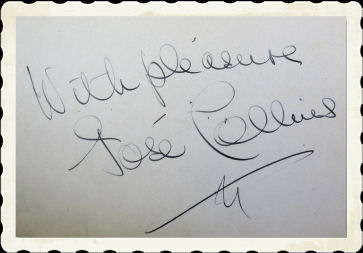 With pleasure
José Collins